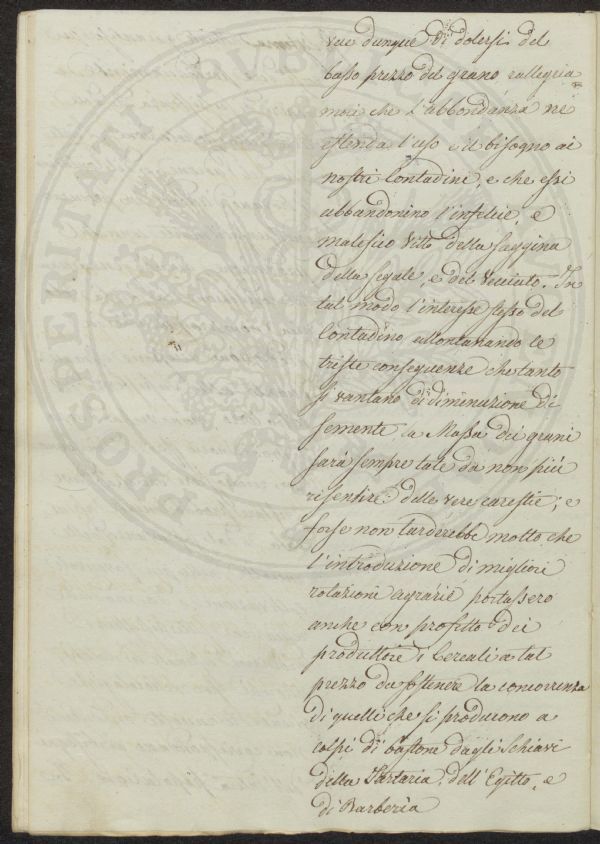 vece dunque di dolersi del
basso prezzo del grano rallegria
moci che l'abbondanza ne
estenda l'uso e il bisogno ai
nostri Contadini, e che essi
abbandonino l'infelice, e
malefico vitto della saggina
della segale, e del vecciuto. In
tal modo l'interesse stesso del
Contadino allontanando le
triste conseguenze che tanto
si vantano di diminuzione di
semente la Massa dei grani
sarà sempre tale da non più
risentire delle vere carestie; e
forse non tarderebbe molto che
l'introduzione di migliori
rotazioni agrarie portassero
anche con profitto dei
produttori i Cereali a tal
prezzo da sostenere la concorrenza
di quelli che si producono a
colpi di bastone dagli Schiavi
della Tartaria, dell'Egitto, e
di Barberia
PROSPERITATI PUBLICAE